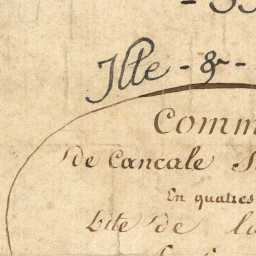 Ille - & -
Comm
de Cancale
En quatres
dite de la